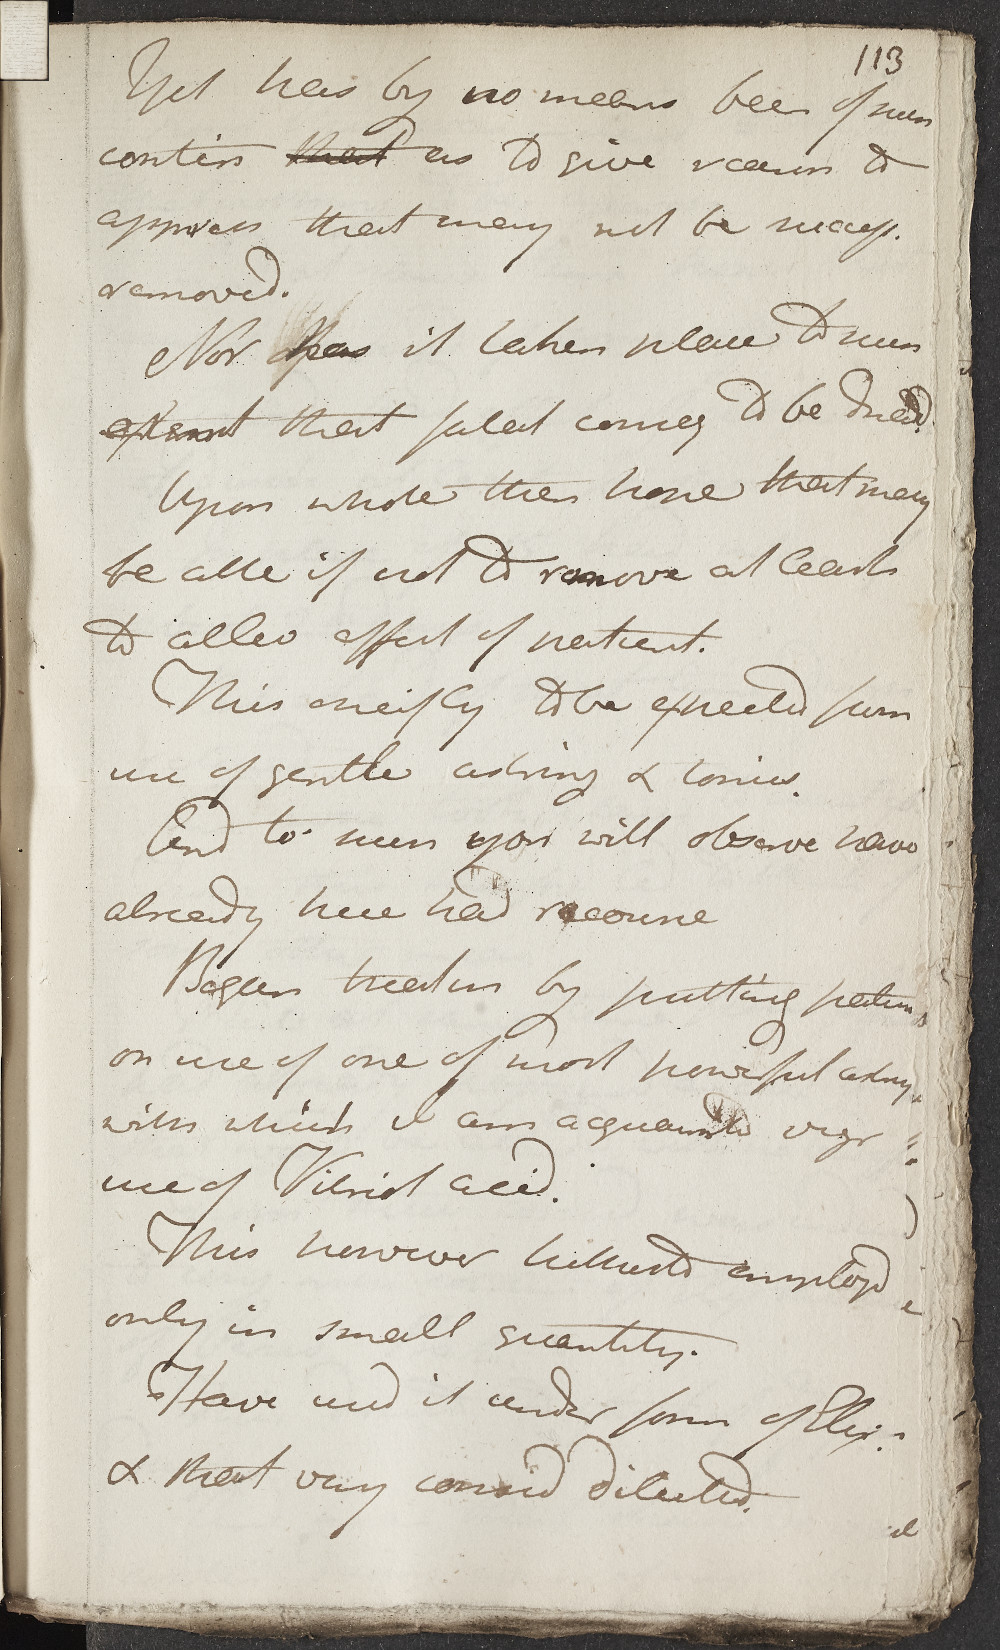 113
Yet has by no means been of such
contin that as to give reason to
appreh that may not be success.
removed.
Nor has it taken place to such
extent that patient comes to be dread.
Upon whole then hope that may
be able if not to remove at least
to allev effect of patient.
This chiefly to be expected from
use of gentle astring & tonics.
And to such you will observe have
already here had recourse
Began treatm by putting patient
on use of one of most powerful astring
with which I am acquainted
use of Vitriol acid.
This however hitherto employd
only in small quantity.
Have used it under form of Elix.
& that very consid diluted.